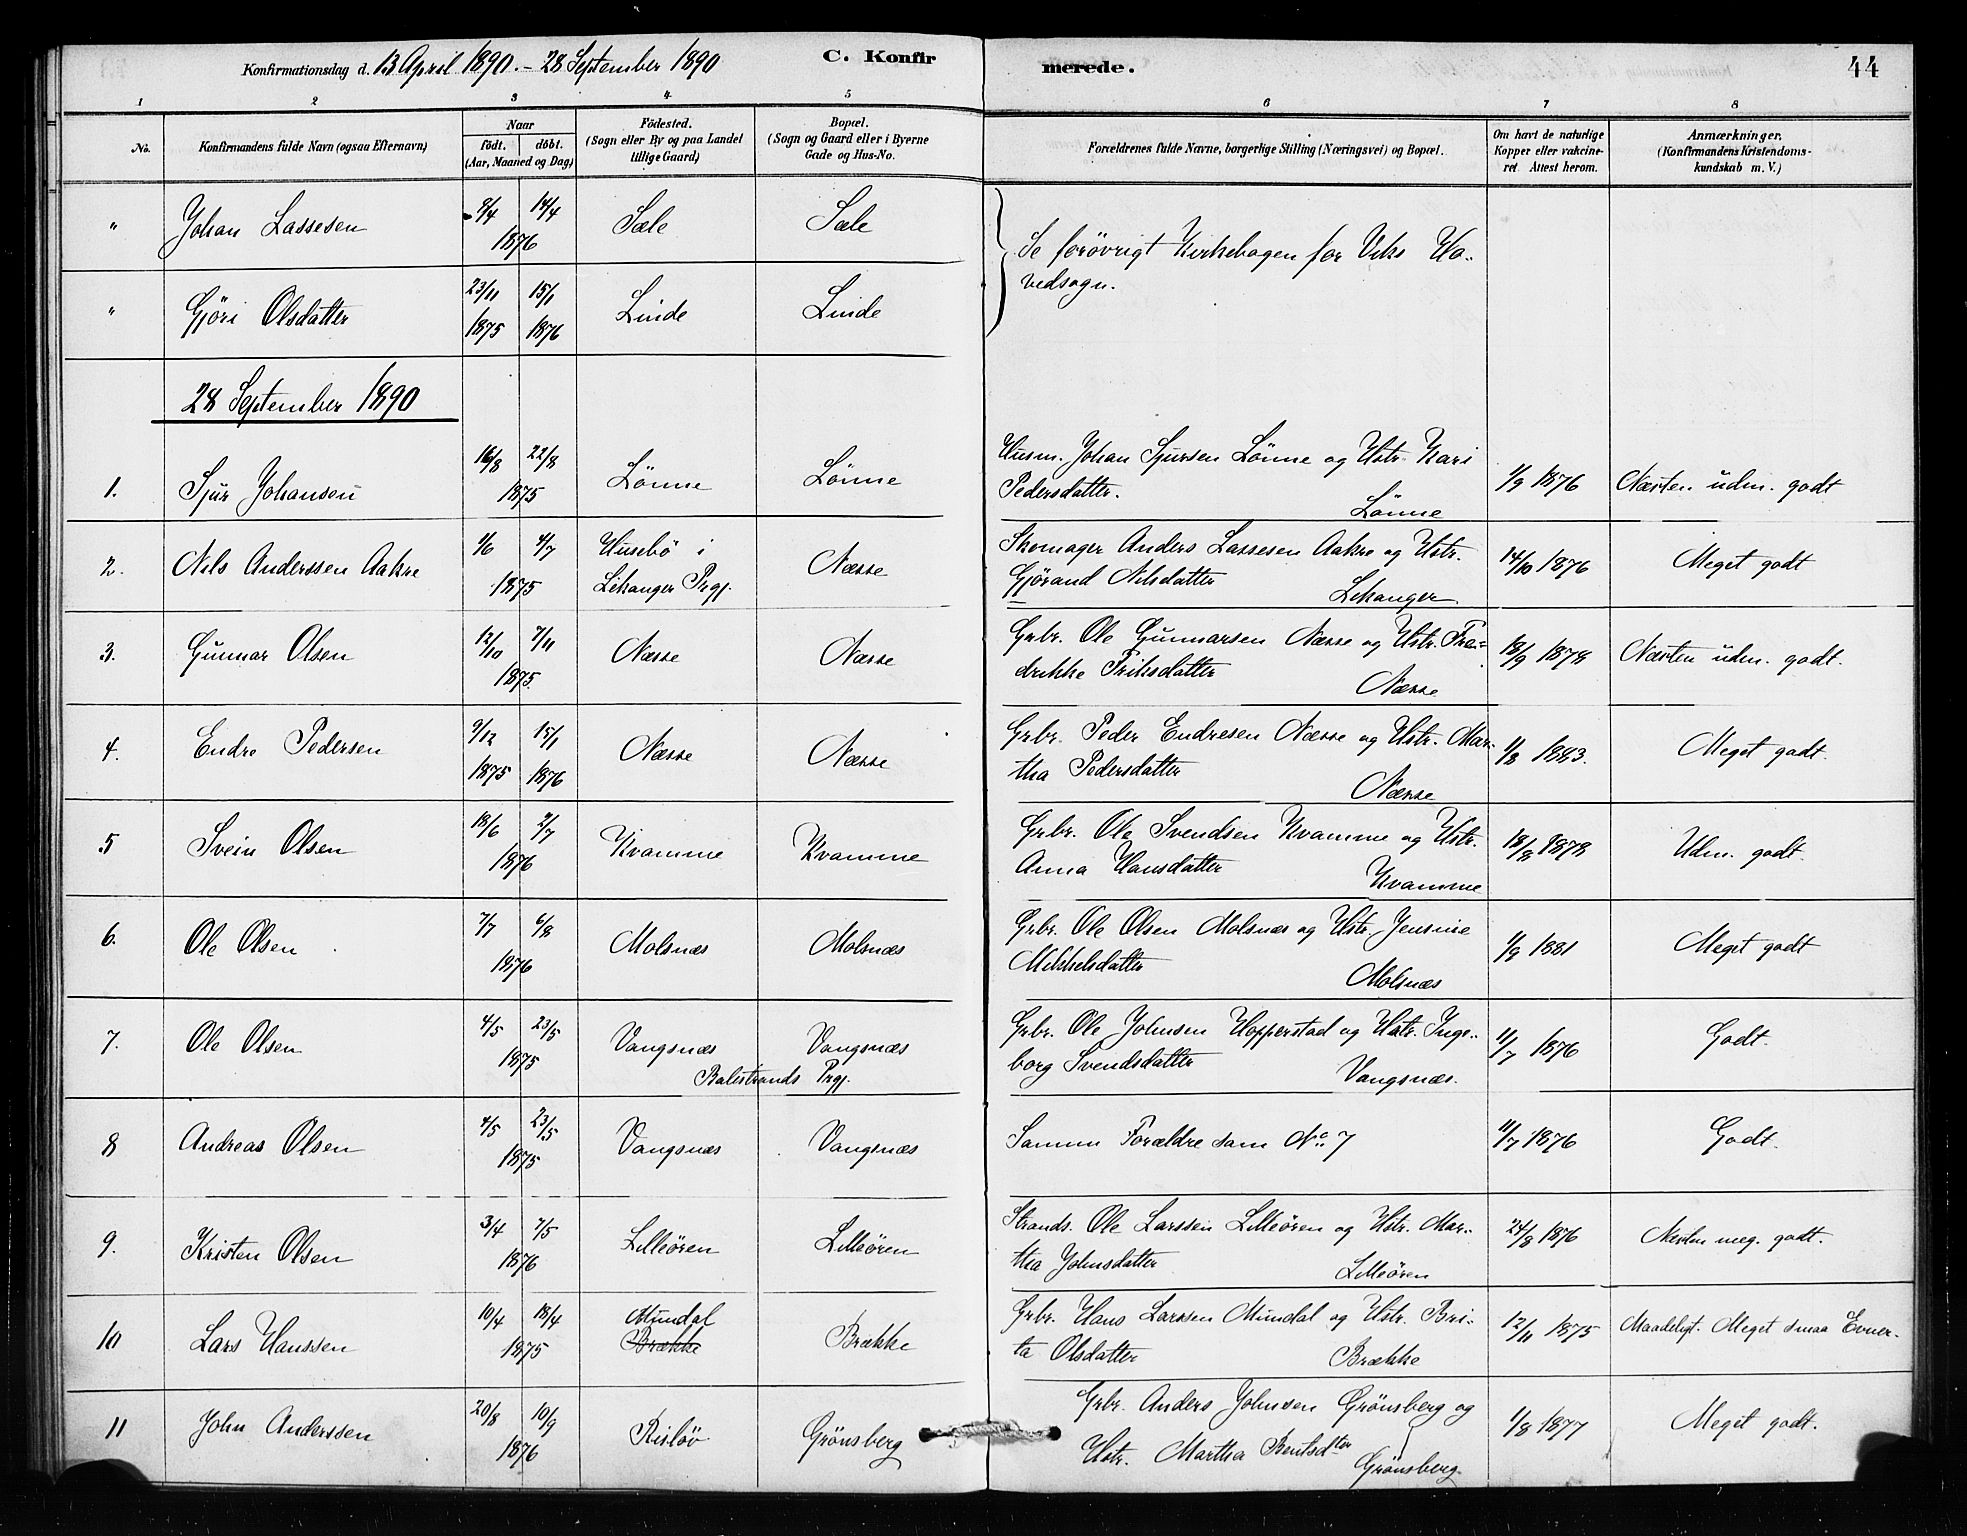 Konfirmationsdag d. 13 April 1890. – 28 September 1890 C. Konfirmerede. 44
1 2 3 4 5 6 7 8
No. Konfirmandens fulde Navn (ogsaa Efternavn) Naar født. døbt. (Aar, Maaned og Dag) Fødested. (Sogn eller By og paa Landet tillige Gaard) Bopæl. (Sogn og Gaard eller i Byerne Gade og Hus-No. Forældrenes fulde Navne, borgerlige Stilling (Næringsvei) og Bopæl. Om havt de naturlige Kopper eller vakcineret Attest herom. Anmærkninger. (Konfirmandens Kristendomskundskab m. V.)
" Johan Lassesen 2/4 14/4 1876 Sæle Sæle
Se forøvrigt Kirkebogen for Viks Ho-
vedsogn.
" Gjöri Olsdatter 23/11 1875 15/1 1876 Linde Linde
28 September 1890
1. Sjur Johansen 16/8 22/8 1875 Lönne Lönne Husm. Johan Sjursen Lönne og Hstr. Kari
Pedersdatter. Lönne 1/9 1876 Næsten udm. godt
2. Nils Anderssen Aakre 1/6 4/7 1875 Husebö i
Lekanger Prgj. Næsse Skomager Anders Lassesen Aakre og Hstr.
Gjörand Nilsdatter Lekanger 14/10 1876 Meget godt
3. Gunnar Olsen 12/10 7/11 1875. Næsse Næsse Grbr. Ole Gunnarsen Næsse og Hstr. Fre-
drikke Friksdatter Næsse 18/9 1878 Næsten udm. godt.
4. Endre Pedersen 9/12 1875 15/1 1876 Næsse Næsse Grbr. Peder Endresen Næsse og Hstr. Mar-
tha Pedersdatter Næsse 1/8 1883. Meget godt.
5 Svein Olsen 18/6 2/7 1876 Kvamme Kvamme Grbr. Ole Svendsen Kvamme og Hstr.
Anna Hansdatter Kvamme 18/8 1878 Udm. godt.
6. Ole Olsen 7/7 6/8 1876 Molsnæs Molsnæs Grbr. Ole Olsen Molsnæs og Hstr. Jensine
Mikkelsdatter Molsnæs 1/9 1881 Meget godt
7. Ole Olsen 4/5 23/5 1875 Vangsnæs Vangsnæs
Balestrands Prgj. Grbr. Ole Johnsen Hopperstad og Hstr. Inge-
borg Svendsdatter Vangsnæs. 11/7 1876 Godt.
8 Andreas Olsen 4/5 23/5 1875 Vangsnæs Vangsnæs Samme Forældre som No 7 11/7 1876 Godt.
9. Kristen Olsen 3/4 7/5 1876 Lilleören Lilleören Strands. Ole Larssen Lilleören og Hstr. Mar-
tha Johnsdatter Lilleören 24/8 1876 Næsten meg. godt.
10 Lars Hanssen 10/4 18/4 1875 Mundal
Brække Brække Grbr. Hans Larssen Mundal og Hstr. Bri-
ta Olsdatter Brække 12/11 1875 Maadeligt. Meget smaa Evner.
11 John Anderssen 20/8 10/9 1876 Risløv Grönsberg Grbr. Anders Johnsen Grönsberg og
Hstr. Martha Bentsdter Grönsberg 1/8 1877 Meget godt.